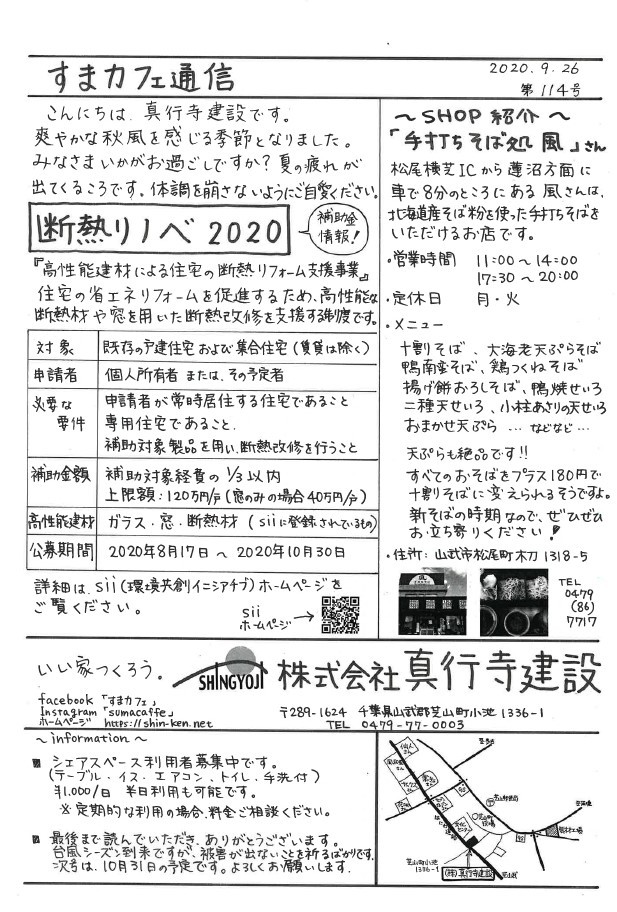 すまカフェ通信
2020.9.26
第114号
こんにちは。真行寺建設です。
爽やかな秋風を感じる季節となりました。
みなさまいかがお過ごしですか？夏の疲れが
出てくるころです。体調を崩さないようにご自愛ください。
断熱リノベ 2020
補助金
情報！
『高性能建材による住宅の断熱リフォーム支援事業』
住宅の省エネリフォームを促進するため、高性能な
断熱材や窓を用いた断熱改修を支援する制度です。
対象 既存の戸建住宅および集合住宅（賃貸は除く）
申請者 個人所有者 または、その予定者
必要な要件 申請者が常時居住する住宅であること
専用住宅であること。
補助対象製品を用い、断熱改修を行うこと
補助金額 補助対象経費の1/3以内
上限額：120万円/戸（窓のみの場合40万円/戸）
高性能建材 ガラス・窓・断熱材（siiに登録されているもの）
公募期間 2020年8月17日～2020年10月30日
詳細は、sii（環境共創イニシアチブ）ホームページを
ご覧ください。
sii
ホームページ→
～SHOP 紹介～
「手打ちそば処 風」さん
松尾横芝ICから蓮沼方面に
車で8分のところにある 風さんは、
北海道産そば粉を使った手打ちそばを
いただけるお店です。
・営業時間 11:00～14:00
17:30～20:00
・定休日 月・火
・メニュー
十割そば、大海老天ぷらそば
鴨南蛮そば、鶏つくねそば
揚げ餅おろしそば、鴨焼せいろ
二種天せいろ、小柱あさりの天せいろ
おまかせ天ぷら …などなど…
天ぷらも絶品です!!
すべてのおそばをプラス180円で
十割そばに変えられるそうですよ。
新そばの時期なので、ぜひぜひ
お立ち寄りください！
・住所：山武市松尾町木刀1318-5
TEL
0479
(86)
7717
いい家つくろう。
SHINGYOJI
株式会社真行寺建設
facebook「すまカフェ」
Instagram「sumacaffe」
ホームページ https://shin-ken.net
〒289-1624 千葉県山武郡芝山町小池1336-1
TEL 0479-77-0003
～information～
■ シェアスペース利用者募集中です。
（テーブル・イス・エアコン、トイレ・手洗付）
¥1,000/日 半日利用も可能です。
※定期的な利用の場合、料金ご相談ください。
■ 最後まで読んでいただき、ありがとうございます。
台風シーズン到来ですが、被害が出ないことを祈るばかりです。
次号は、10月31日の予定です。よろしくお願いします。
芝山町小池
1336-1
(株)真行寺建設